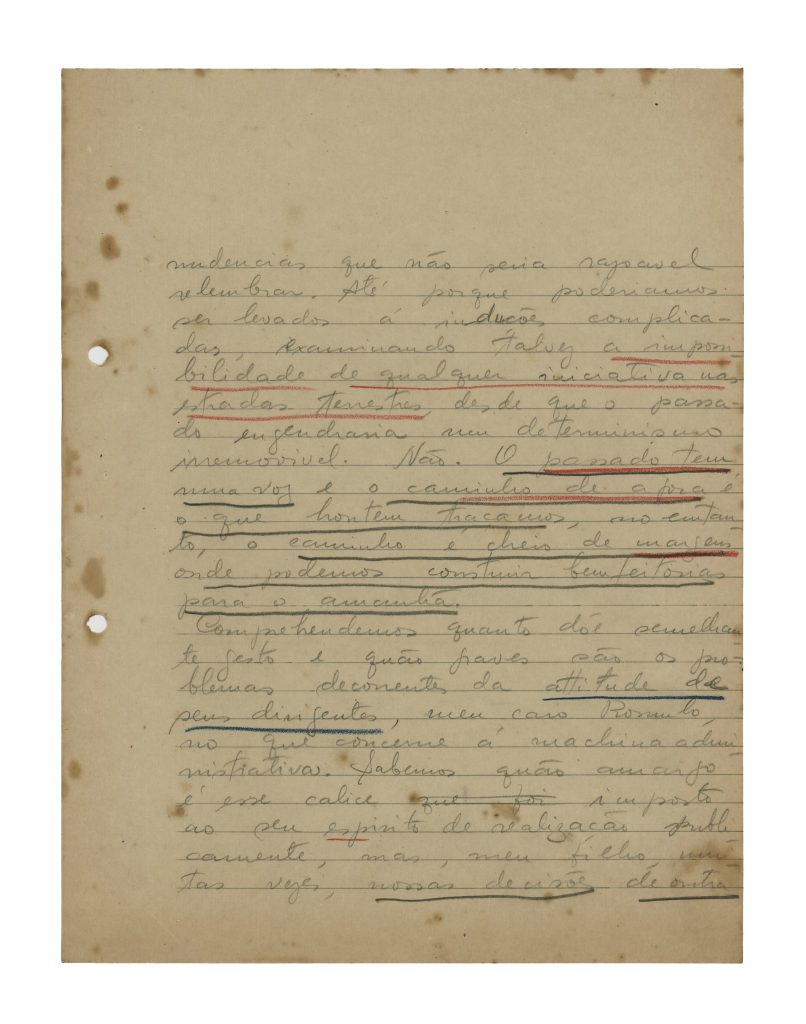 nudencias que não seria rasoavel
relembrar. Até porque poderiamos
ser levados á inducões complica-
das, examinando talvez a impossi-
bilidade de qualquer iniciativa nas
estradas terrestres, desde que o passa-
do engendraria um determinismo
irremovivel. Não. O passado tem
uma voz e o caminho de agora é
o que hontem traçamos, no entan-
to, o caminho é cheio de margens
onde podemos construir bemfeitorias
para o amanhã.
Comprehendemos quanto dóe semelhan
te gesto e quão graves são os pro-
blemas decorrentes da attitude de
seus dirigentes, meu caro Romulo,
no que concerne á machina admi-
nistrativa. Sabemos quão amargo
é esse calice que foi imposto
ao seu espirito de realização publi
camente, mas, meu filho, mui
tas vezes, nossas decisões de outra